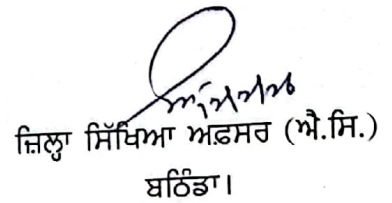 ਜ਼ਿਲ੍ਹਾ ਸਿੱਖਿਆ ਅਫ਼ਸਰ (ਐ.ਸਿ.)
ਬਠਿੰਡਾ।